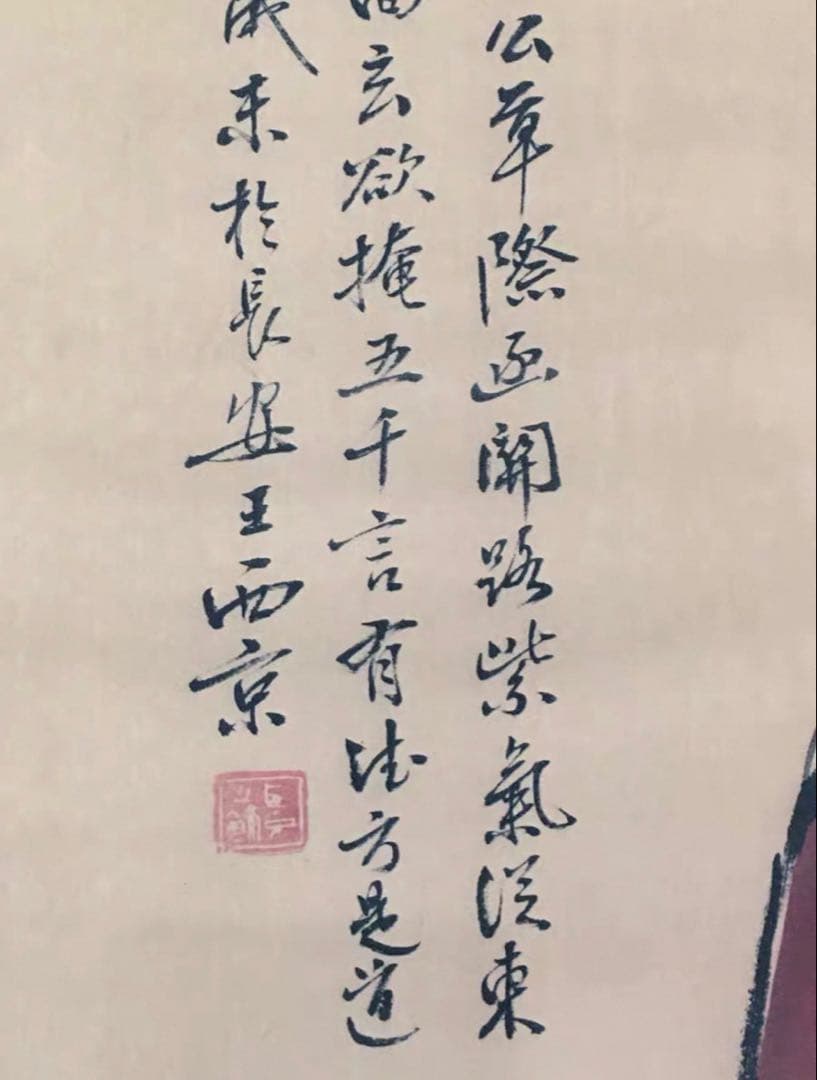 公草際函關路紫氣從東
玄欲掩五千言有法方是道
歲末於長安王西京